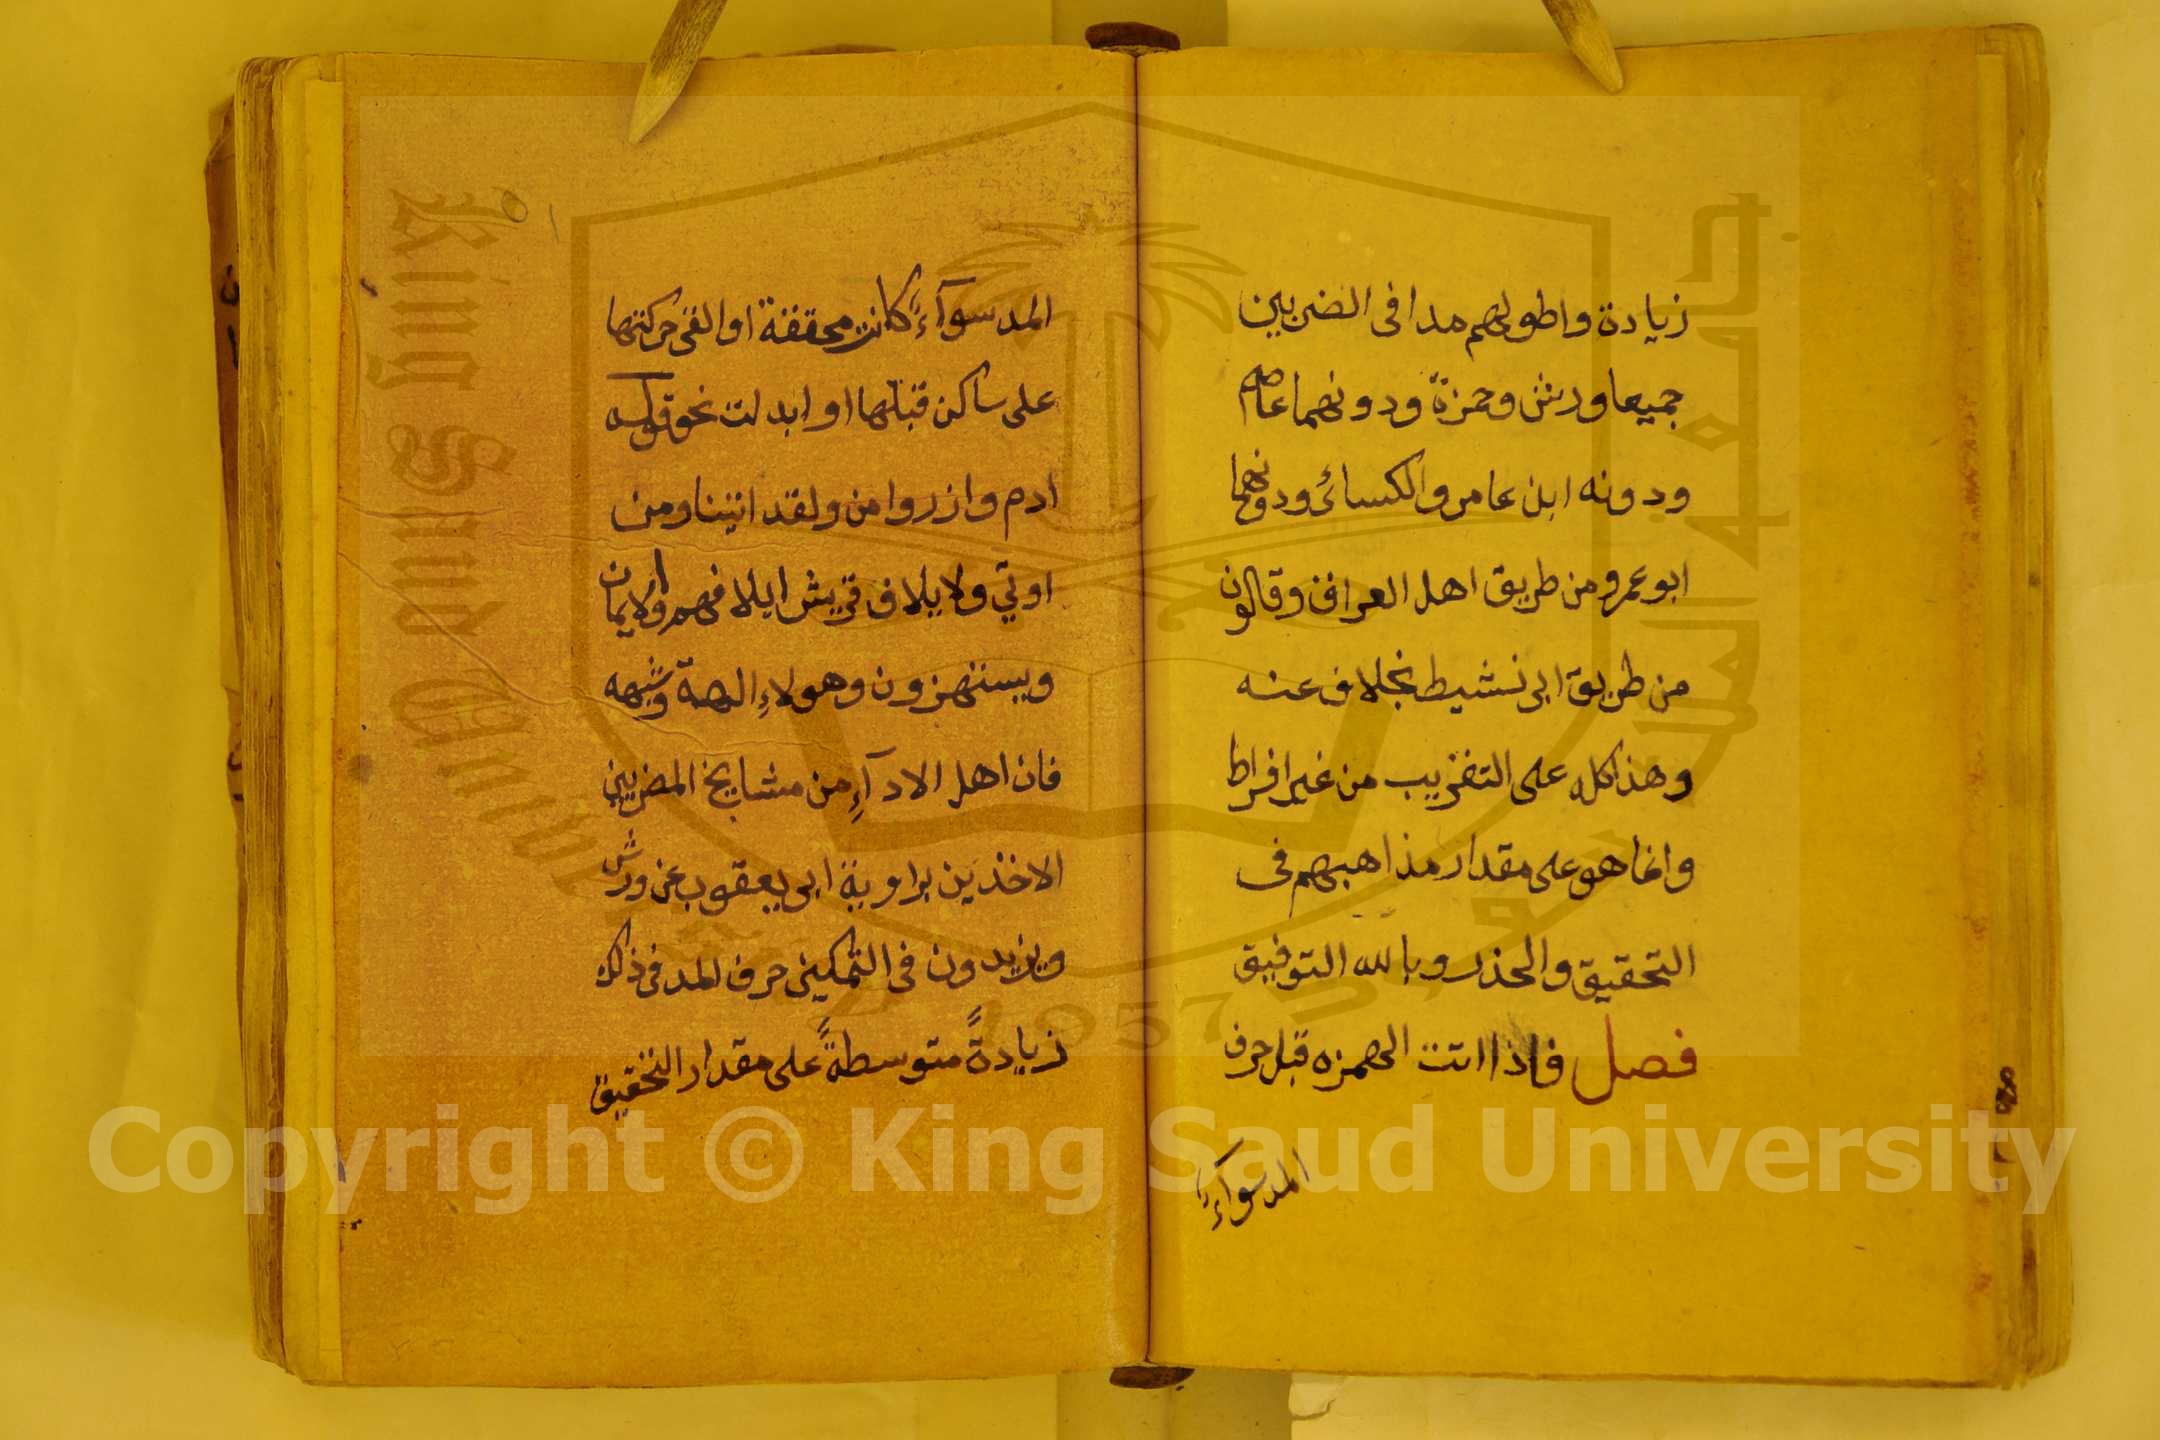 زيادة واطولهم مدا فى الضربين
جميعا ورش وحمزة ودونهما عاصم
ودونه ابن عامر والكسائى ودونهما
ابو عمرو من طريق اهل العراق وقالون
من طريق ابى نشيط بخلاف عنه
وهذا كله على التقريب من غير افراط
وانما هو على مقدار مذاهبهم فى
التحقيق والحذر وبالله التوفيق
فصل فاذا اتت الهمزه قبل حرف
المد سوآءً
المد سوآءً كانت محققة او القى حركتها
على ساكن قبلها او ابدلت نحو قوله
ادم وازر وامن ولقد اتينا ومن
اوتي ولايلاف قريش ايلافهم وللايمان
ويستهزون وهولاءِ الهة وشبهه
فان اهل الادآءِ من مشايخ المصريين
الاخذين براوية ابى يعقوب عن ورش
ويزيدون فى التمكين حرف المد فى ذلك
زيادةً متوسطةً على مقدار التحقيق
Copyright © King Saud University
King Saud University
جامعة الملك سعود
1957